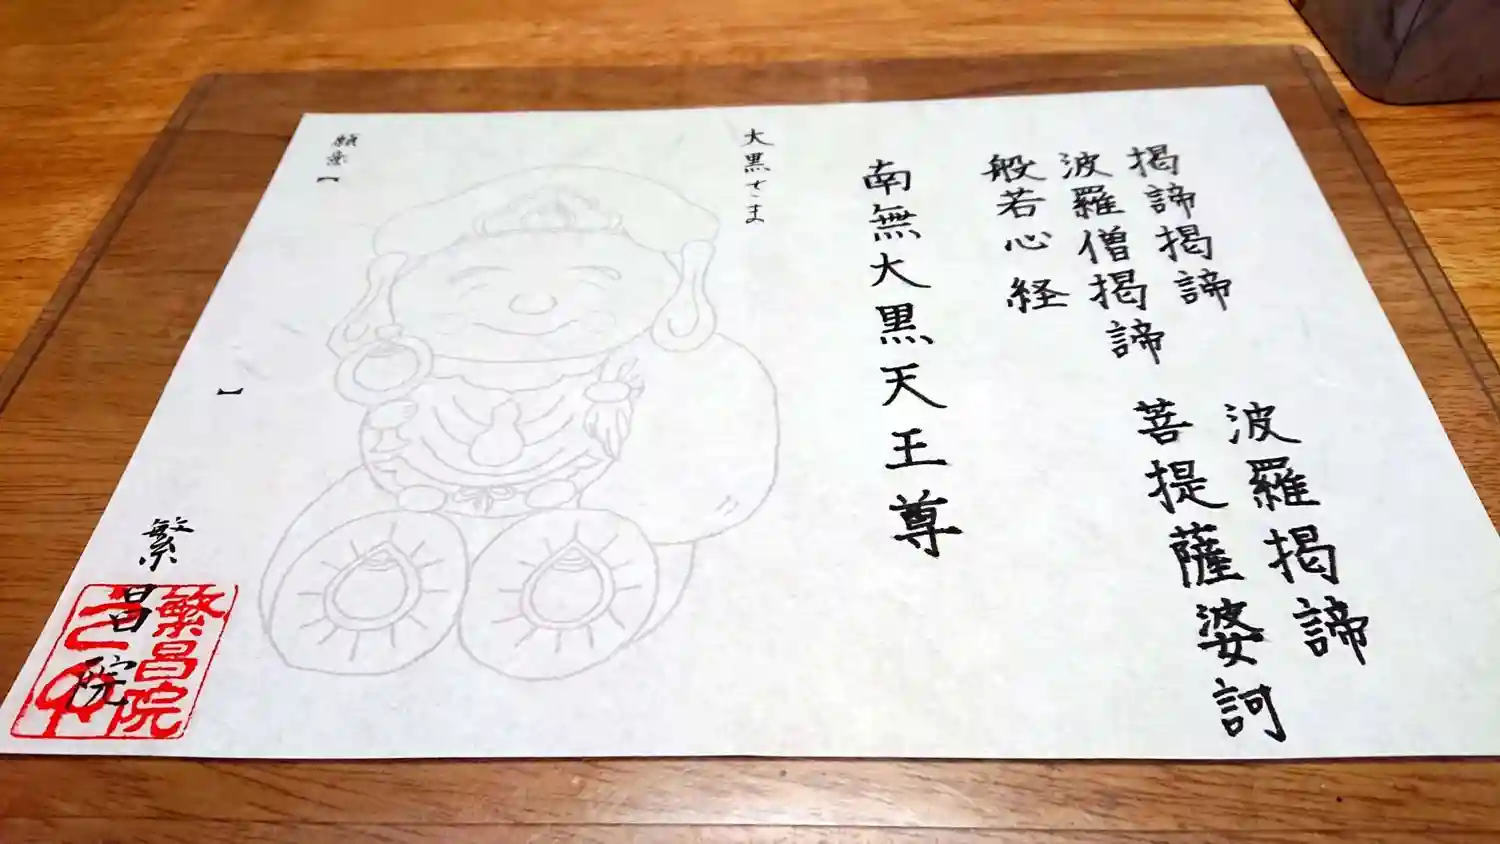 揭諦揭諦 波羅揭諦
波羅僧揭諦 菩提薩婆訶
般若心経
南無大黒天王尊
大黒さま
願意【 】
繁昌院
繁昌院